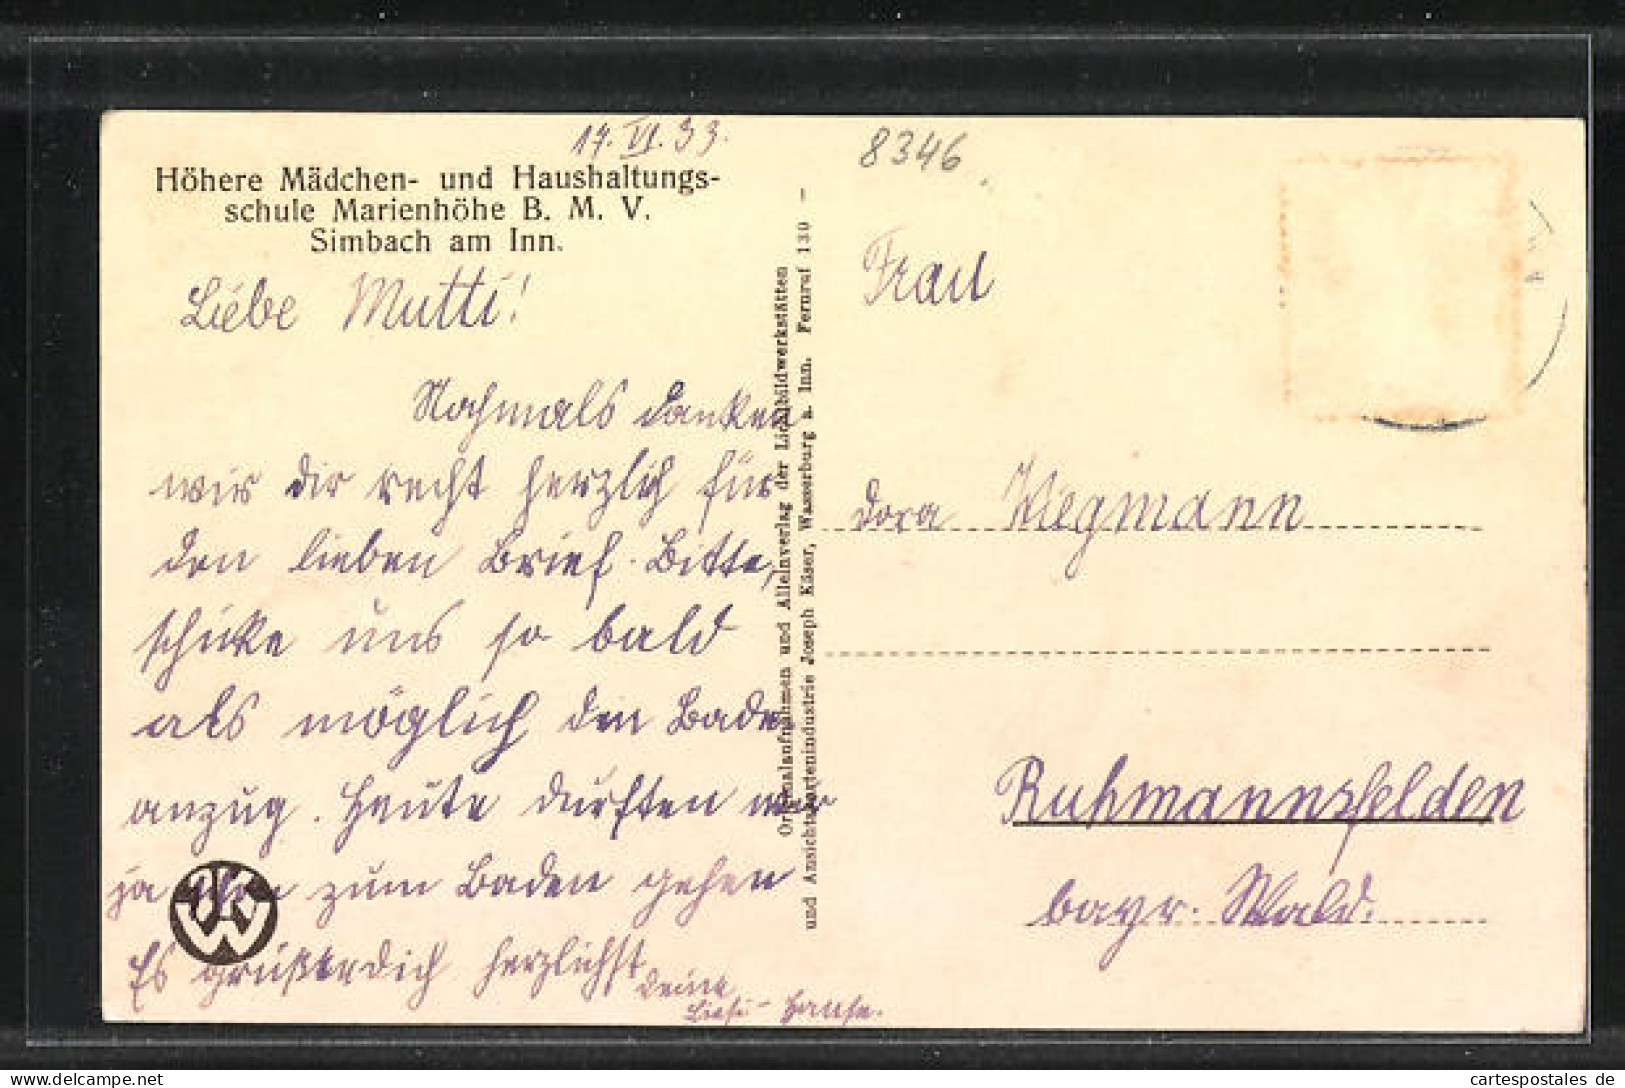 17. VI. 33.
Höhere Mädchen- und Haushaltungs-
schule Marienhöhe B. M. V.
Simbach am Inn.
Liebe Mutti!
Nochmals danken
wir dir recht herzlich für
den lieben Brief. Bitte,
schicke uns so bald
als möglich den Bade
anzug. Heute durften wir
ja schon zum Baden gehen
Es grüßen dich herzlichst
Deine
Originalaufnahmen und Alleinverlag der Lichtbildwerkstätten
und Ansichtskartenindustrie Joseph Käser, Wasserburg a. Inn. Fernruf 130 —
8346
Frau
Dora Wegmann
Ruhmannsfelden
bayr. Wald.
www.cartespostales.de
cartespostales de